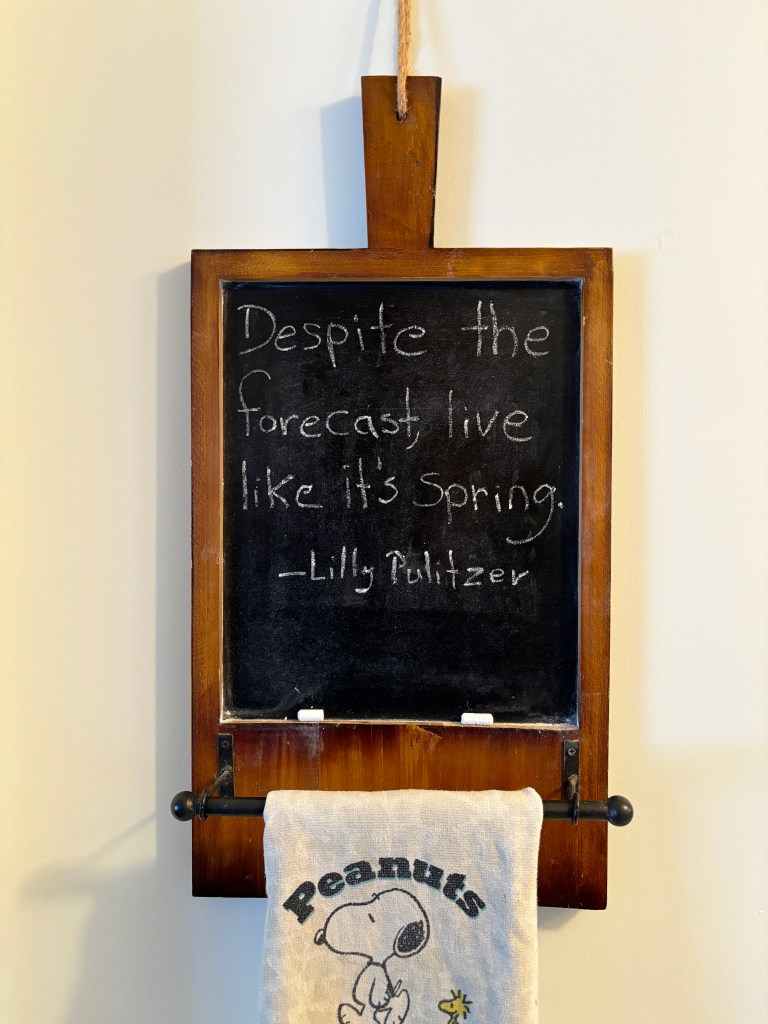 Despite the
forecast, live
like it's Spring.
-Lilly Pulitzer
Peanuts